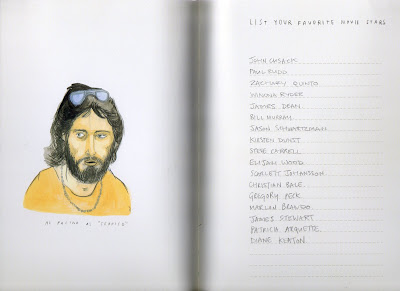 AL PACINO AS "SERPICO"
LIST YOUR FAVORITE MOVIE STARS
JOHN CUSACK
PAUL RUDD
ZACHARY QUINTO
WINONA RYDER
JAMES DEAN
BILL MURRAY
JASON SCHWARTZMAN
KIRSTEN DUNST
STEVE CARRELL
ELIJAH WOOD
SCARLETT JOHANSSON
CHRISTIAN BALE
GREGORY PECK
MARLON BRANDO
JAMES STEWART
PATRICIA ARQUETTE
DIANE KEATON